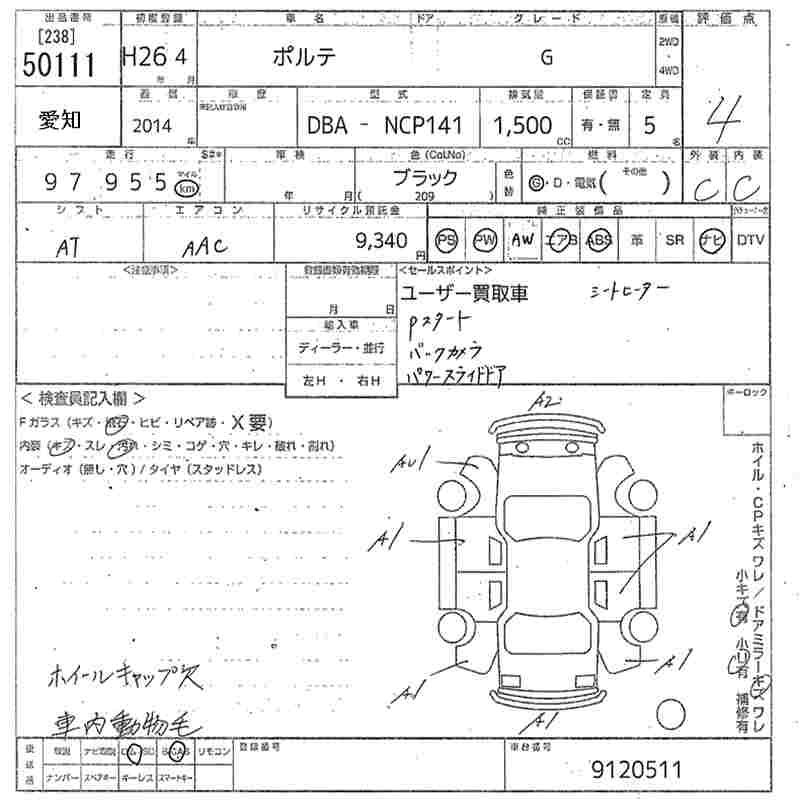 出品番号 初度登録 車名 ドア グレード 原動 評価点
[238] 50111 H26 4 ポルテ G 2WD 4WD 4
年 月
愛知 2014 年 型式 DBA - NCP141 排気量 1,500 CC 保証書 有・無 定員 5 名
走行 車検 色(Col.No) 燃料 外装 内装
97 955 マイル km 年 月 ブラック ( 209 ) 色替 G・D・電気( その他 ) C C
シフト エアコン リサイクル預託金 純正装備品
AT AAC 9,340 円 PS PW AW エアB ABS 革 SR ナビ DTV
<注意事項> 登録書類有効期限 <セールスポイント>
月 日
ユーザー買取車 シートヒーター
輸入車
Pスタート
ディーラー・並行
バックカメラ
左H ・ 右H
パワースライドドア
<検査員記入欄> キーロック
Fガラス(キズ・飛石・ヒビ・リペア跡・X要)
内装(キズ・スレ・汚れ・シミ・コゲ・穴・キレ・破れ・割れ)
オーディオ(無し・穴)/タイヤ(スタッドレス)
A2
AU1
A1 A1
A1 A1
A1
ホイール・CPキズ ワレ / ドアミラーキズ ワレ
小キズ有 小U有 補修有
ホイールキャップ欠
車内動物毛
後送品 取説 ナビ取説 ロム・SD B-CAS リモコン 登録番号 車台番号
ナンバー スペアキー キーレス スマートキー 9120511